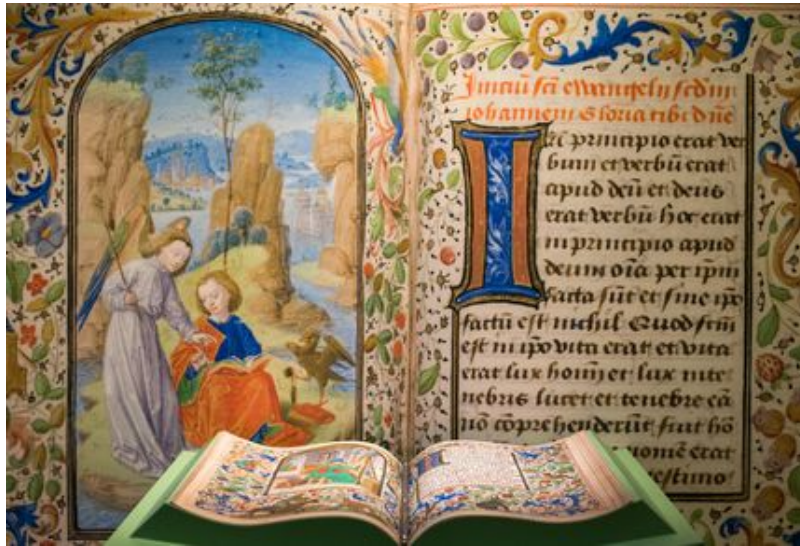 Iniciū scī ewangelij scdm
iohannem Gloria tibi dñe
In principio erat ver
bum et verbū erat
apud deū et deus
erat verbū hoc erat
in principio apud
deum oīa per ipm
facta sūt et sine ipo
factū est nichil Quod fcm
est in ipo vita erat et vita
erat lux homī et lux in te
nebris lucet et tenebre eā
nō cōprehenderūt fuit hō
nomē erat
testimo